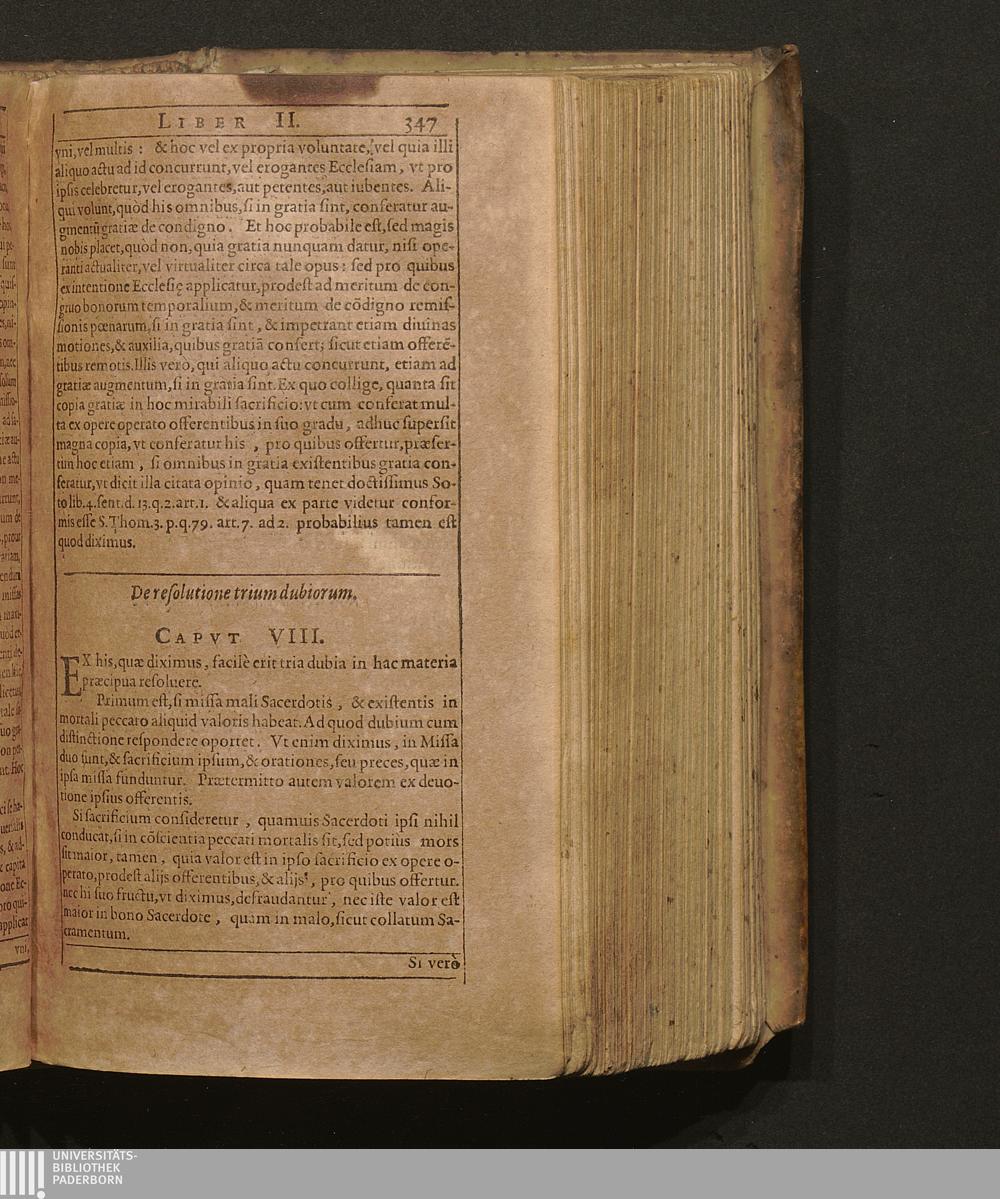 LIBER II. 347
vni, vel multis : & hoc vel ex propria voluntate, vel quia illi
aliquo actu ad id concurrunt, vel erogantes Ecclesiam, vt pro
ipsis celebretur, vel erogantes, aut petentes, aut iubentes. Ali-
qui volunt, quòd his omnibus, si in gratia sint, conferatur au-
gmentũ gratiæ de condigno. Et hoc probabile est, sed magis
nobis placet, quòd non, quia gratia nunquam datur, nisi ope-
ranti actualiter, vel virtualiter circa tale opus : sed pro quibus
ex intentione Ecclesię applicatur, prodest ad meritum de con-
gruo bonorum temporalium, & meritum de cõdigno remis-
sionis pœnarum, si in gratia sint, & impetrant etiam diuinas
motiones, & auxilia, quibus gratiã confert; sicut etiam offerẽ-
tibus remotis. Illis verò, qui aliquo actu concurrunt, etiam ad
gratiæ augmentum, si in gratia sint. Ex quo collige, quanta sit
copia gratiæ in hoc mirabili sacrificio: vt cum conferat mul-
ta ex opere operato offerentibus in suo gradu, adhuc supersit
magna copia, vt conferatur his, pro quibus offertur, præser-
tim hoc etiam, si omnibus in gratia existentibus gratia con-
feratur, vt dicit illa citata opinio, quam tenet doctissimus So-
to lib. 4. sent. d. 13. q. 2. art. 1. & aliqua ex parte videtur confor-
mis esse S. Thom. 3. p. q. 79. art. 7. ad 2. probabilius tamen est
quod diximus.
De resolutione trium dubiorum.
CAPVT VIII.
EX his, quæ diximus, facilè erit tria dubia in hac materia
præcipua resoluere.
Primum est, si missa mali Sacerdotis, & existentis in
mortali peccato aliquid valoris habeat. Ad quod dubium cum
distinctione respondere oportet. Vt enim diximus, in Missa
duo sunt, & sacrificium ipsum, & orationes, seu preces, quæ in
ipsa missa funduntur. Prætermitto autem valorem ex deuo-
tione ipsius offerentis.
Si sacrificium consideretur, quamuis Sacerdoti ipsi nihil
conducat, si in cõscientia peccati mortalis sit, sed potius mors
sit maior, tamen, quia valor est in ipso sacrificio ex opere o-
perato, prodest alijs offerentibus, & alijs, pro quibus offertur.
nec hi suo fructu, vt diximus, defraudantur, nec iste valor est
maior in bono Sacerdote, quam in malo, sicut collatum Sa-
cramentum.
Si verò
UNIVERSITÄTS-
BIBLIOTHEK
PADERBORN